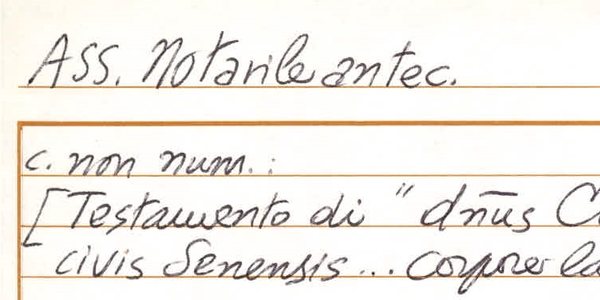 Ass. Notarile antec.
c. non num.:
[Testamento di " dn̄us
civis Senensis ... corpore